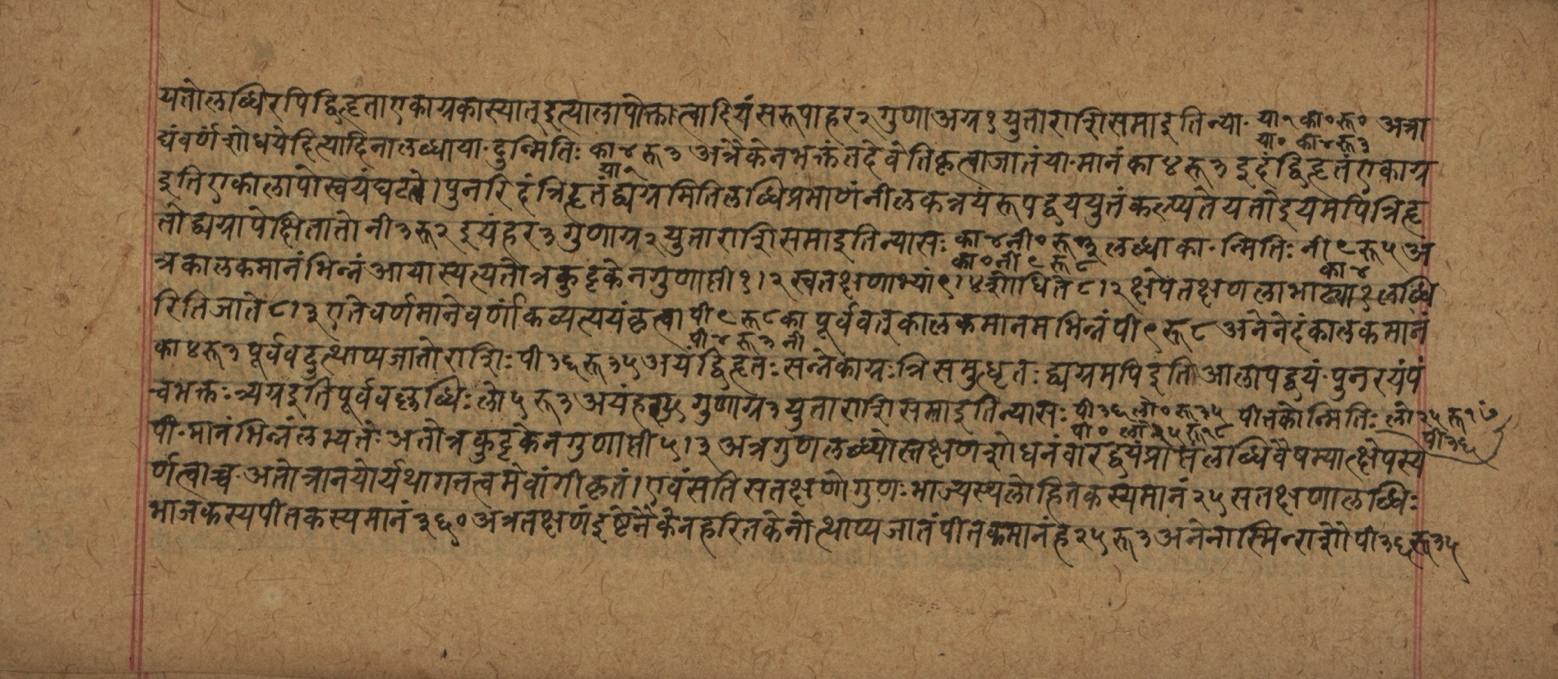 यतोलब्धिरपिद्विहृताएकाग्रकास्यात् इत्यालापोक्तात्वादियंसरूपाहर२गुणाअग्र१युताराशिसमाइतिन्या॰ या१का०रू० अत्रा
या०का४रू३
द्यंवर्णंशोधयेदित्यादिनालब्धाया॰दुन्मितिः का४रू३ अत्रैकेनभक्तंतदेवेतिकृत्वाजातंया॰मानंका४रू३इदंद्विहृतंएकाग्र
या१
इतिएकालापोस्वयंघटते।पुनरिदंत्रिहृतंद्व्यग्रमितिलब्धिप्रमाणंनीलकत्रयंरूपद्वययुतंकल्प्यतेयतोइयमपित्रिहृ
तोद्व्यग्रापेक्षितातोनी३रू२इयंहर३गुणाग्र२युताराशिसमाइतिन्यासः का४नी०रू३ लब्धाका॰न्मितिः नी९रू५अ
का०नी९रू८ का४
त्रकालकमानंभिन्नंआयास्यत्यतोत्रकुट्टकेनगुणाप्ती१।२स्वतक्षणाभ्यां९।४शोधिते८।२क्षेपेतक्षणलाभाढ्यालब्धि
रितिजाते८।३एतेवर्णमानेवर्णांकव्यत्ययंकृत्वापी९रू८का पूर्ववत्कालकमानमभिन्नंपी९रू८अनेनेदंकालकमानं
पी४रू३नी
का४रू३पूर्ववदुत्थाप्यजातोराशिःपी३६रू३५अयंद्विहृतःसन्नेकाग्रःत्रिसमुद्धृतःद्व्यग्रमपिइतिआलापद्वयं॰पुनरयंपं
चभक्तःत्र्यग्रइतिपूर्ववल्लब्धिःलो५रू३अयंहर५गुणाग्र३युताराशिसमाइतिन्यासः पी३६लो०रू३५ पीतकोन्मितिः लो२५रू१७
पी०लो२५रू१८ पी३६
पी॰मानंभिन्नंलभ्यतेःअतोत्रकुट्टकेनगुणाप्ती५।३अत्रगुणलब्ध्योस्तक्षणशोधनंवारद्वयंप्राप्तंलब्धिवैषम्यात्क्षेपस्य
र्णत्वाच्च॰अतोत्रानयोर्यथागतत्वमेवांगीकृतं।एवंसतिसतक्षणोगुणःभाज्यस्थलोहितकस्यमानं२५सतक्षणालब्धिः
भाजकस्यपीतकस्यमानं३६०अत्रतक्षणंइष्टेनैकेनहरितकेनोत्थाप्यजातंपीतकमानंह२५रू३अनेनास्मिन्राशौपी३६रू३५